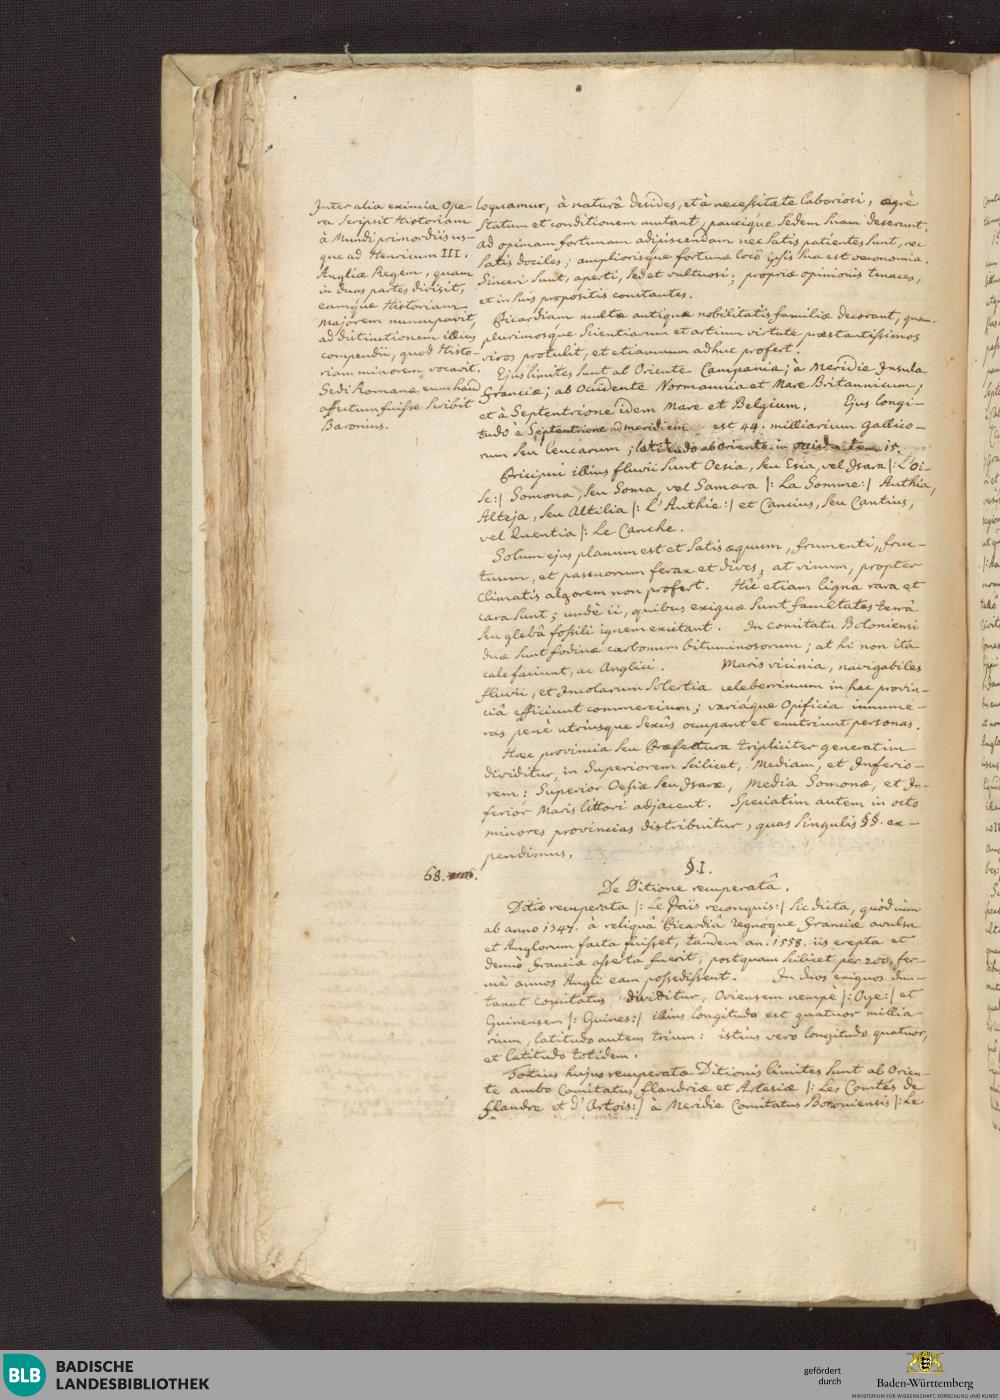 Inter alia eximia Ope-
ra scripsit Historiam
à Mundi primordiis us-
que ad Henricum III.
Angliæ Regem, quam
in duas partes divisit,
eamque Historiam
Majorem nuncupavit,
ad distinctionem illius
compendii, quod Histo-
riam minorem vocavit.
Sedi Romanæ eum haud
affectum fuisse scribit
Baronius.
loquamur, à naturâ desides, et à necessitate laboriosi, ægrè
statum et conditionem mutant, paucique sedem suam deserunt,
ad opimam fortunam adipiscendam nec satis patientes sunt, nec
satis dociles; ampliorisque fortunæ locô ipsis sua est oeconomia.
Sinceri sunt, aperti, sed et vultuosi; propriæ opinionis tenaces,
et in suis propositis constantes.
Picardiam multæ antiquæ nobilitatis familiæ decorant, quam-
plurimosque scientiarum et artium virtute præstantissimos
viros protulit, et etiamnum adhuc profert.
Ejus limites sunt ab Oriente Campania; à Meridie Insula
Franciæ; ab Occidente Normannia et Mare Britannicum;
et à Septentrione idem Mare et Belgium. Ejus longi-
tudo à Septentrione ad meridiem est 44. milliarium Gallico-
rum seu leucarum; latitudo ab oriente in occidentem 15.
Pricipui illius fluvii sunt Oesia, seu Esia, vel Isara |: L'Oi-
se:| Somona, seu Soma, vel Samara |: La Somme:| Authia,
Alteja, seu Altilia |: L'Authie:| et Cancius, seu Cantius,
vel Quentia |: Le Canche.
Solum ejus planum est et satis æquum, frumenti, fruc-
tuum, et pascuorum ferax et dives; at vinum, propter
climatis algorem non profert. Hîc etiam ligna rara et
cara sunt; undè ii, quibus exiguæ sunt facultates terrâ
seu glebâ fossili ignem excitant. In Comitatu Boloniensi
duæ sunt fodinæ carbonum bituminosorum; at hi non ita
calefaciunt, ac Anglici. Maris vicinia, navigabiles
fluvii, et Incolarum solertia celeberrimum in hac provin-
ciâ efficiunt commercium; variáque Opificia innume-
ras penè utriusque sexûs occupant et enutriunt personas.
Hæc provincia seu Præfectura tripliciter generatim
dividitur, in Superiorem scilicet, Mediam, et Inferio-
rem: Superior Oesiæ seu Isaræ, Media Somonæ, et In-
ferior Maris littori adjacent. Speciatim autem in octo
minores provincias distribuitur, quas singulis §§. ex-
pendimus.
68.
§. I.
De Ditione recuperatâ.
Ditio recuperata |: Le Païs reconquis:| sic dicta, quòd cùm
ab anno 1347. à reliquâ Picardiâ regnóque Franciæ avulsa
et Anglorum facta fuisset, tandem an. 1558. iis erepta et
denuò Franciæ asserta fuerit, postquam scilicet per 200. fer-
mè annos Angli eam possedissent. In duos exiguos dun-
taxat Comitatus dividitur, Oviensem nempè |: Oye:| et
Guinensem |: Guines:| illius longitudo est quatuor millia-
rium, latitudo autem trium: istius verò longitudo quatuor,
et latitudo totidem.
Totius hujus recuperatæ Ditionis limites sunt ab Orien-
te ambo Comitatus Flandriæ et Artesiæ |: Les Comtés de
Flandre et d'Artois:| à Meridie Comitatus Bononiensis |: Le
BLB
BADISCHE
LANDESBIBLIOTHEK
gefördert
durch
Baden-Württemberg
MINISTERIUM FÜR WISSENSCHAFT, FORSCHUNG UND KUNST